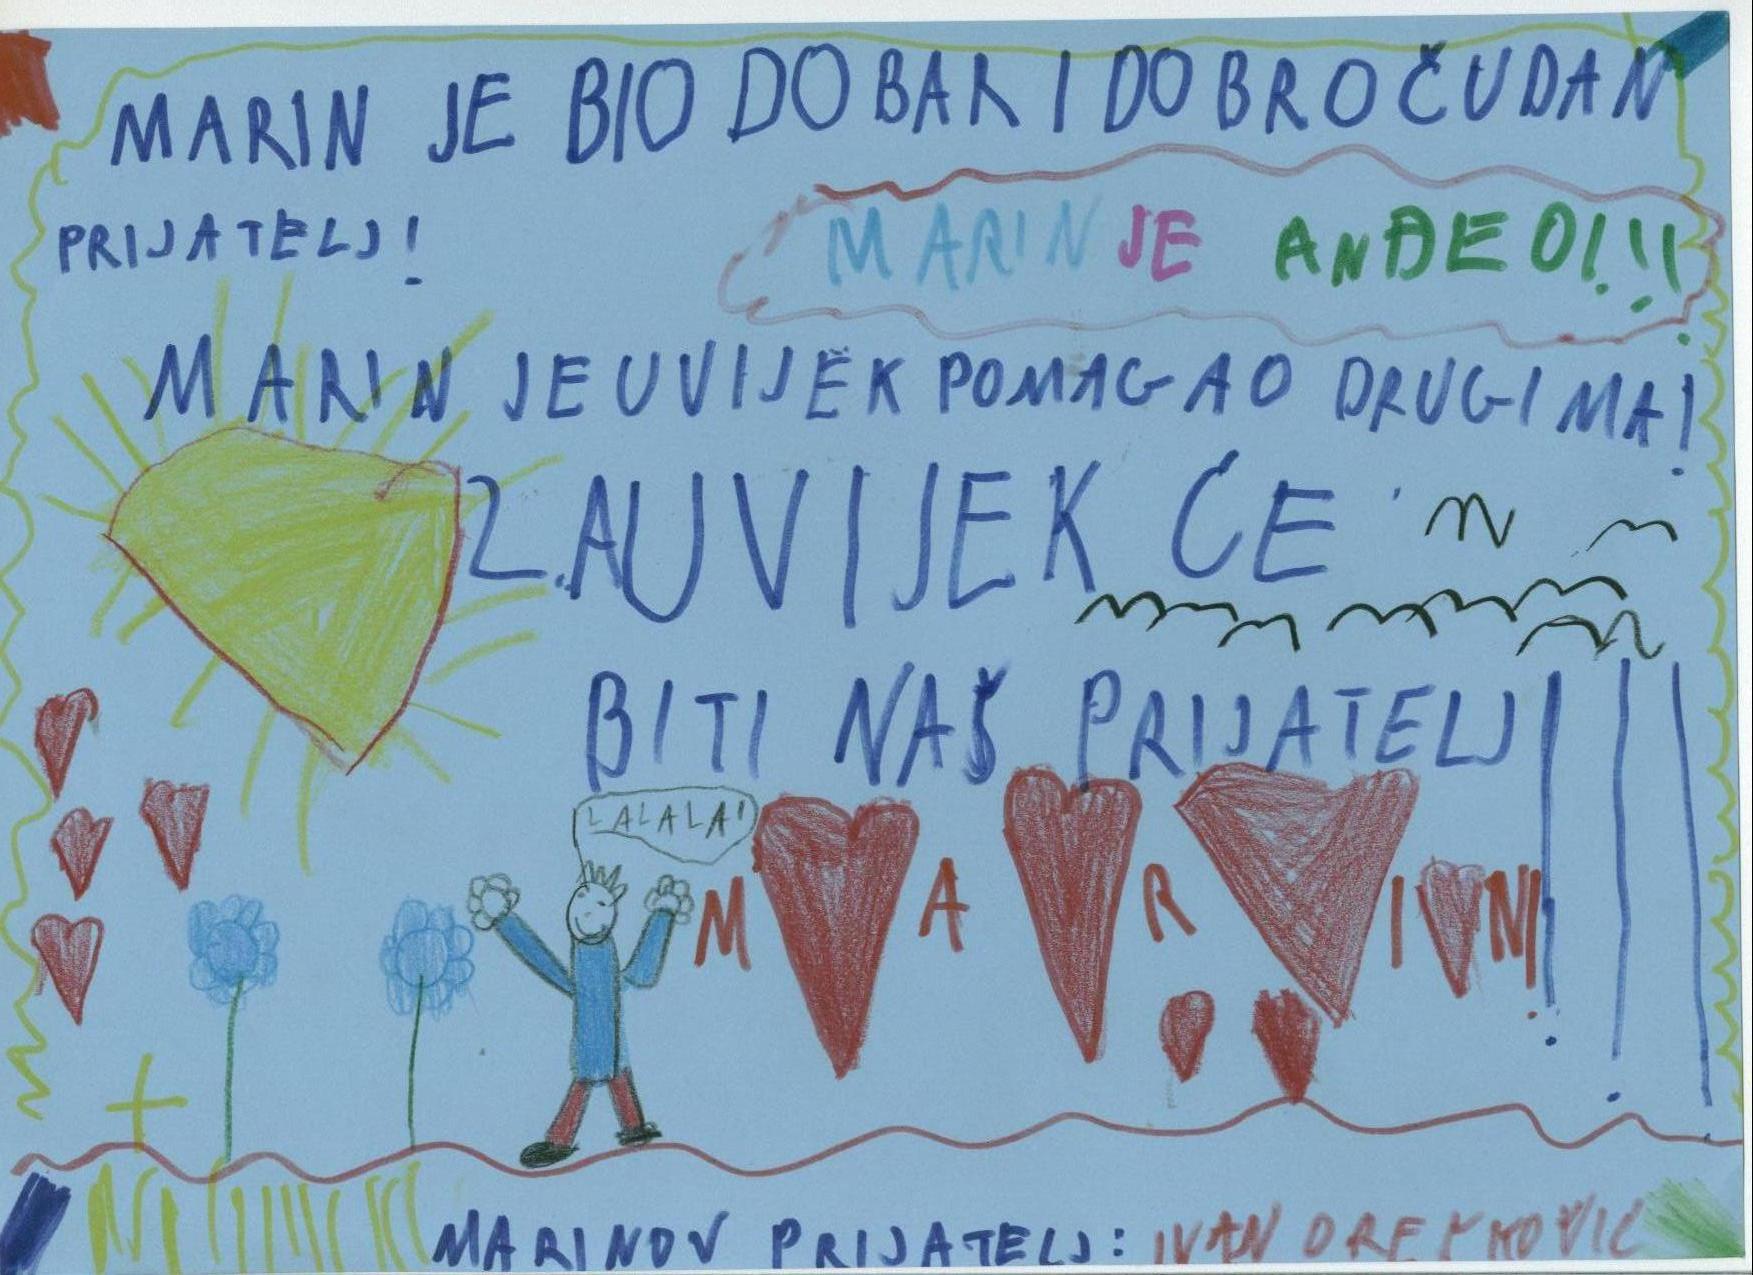 MARIN JE BIO DOBAR I DOBROČUDAN
PRIJATELJ!
MARIN JE ANĐEO!!!
MARIN JE UVIJEK POMAGAO DRUGIMA!
ZAUVIJEK ĆE
BITI NAŠ PRIJATELJ!!!
LALALA!
MARIN!
MARINOV PRIJATELJ: IVAN